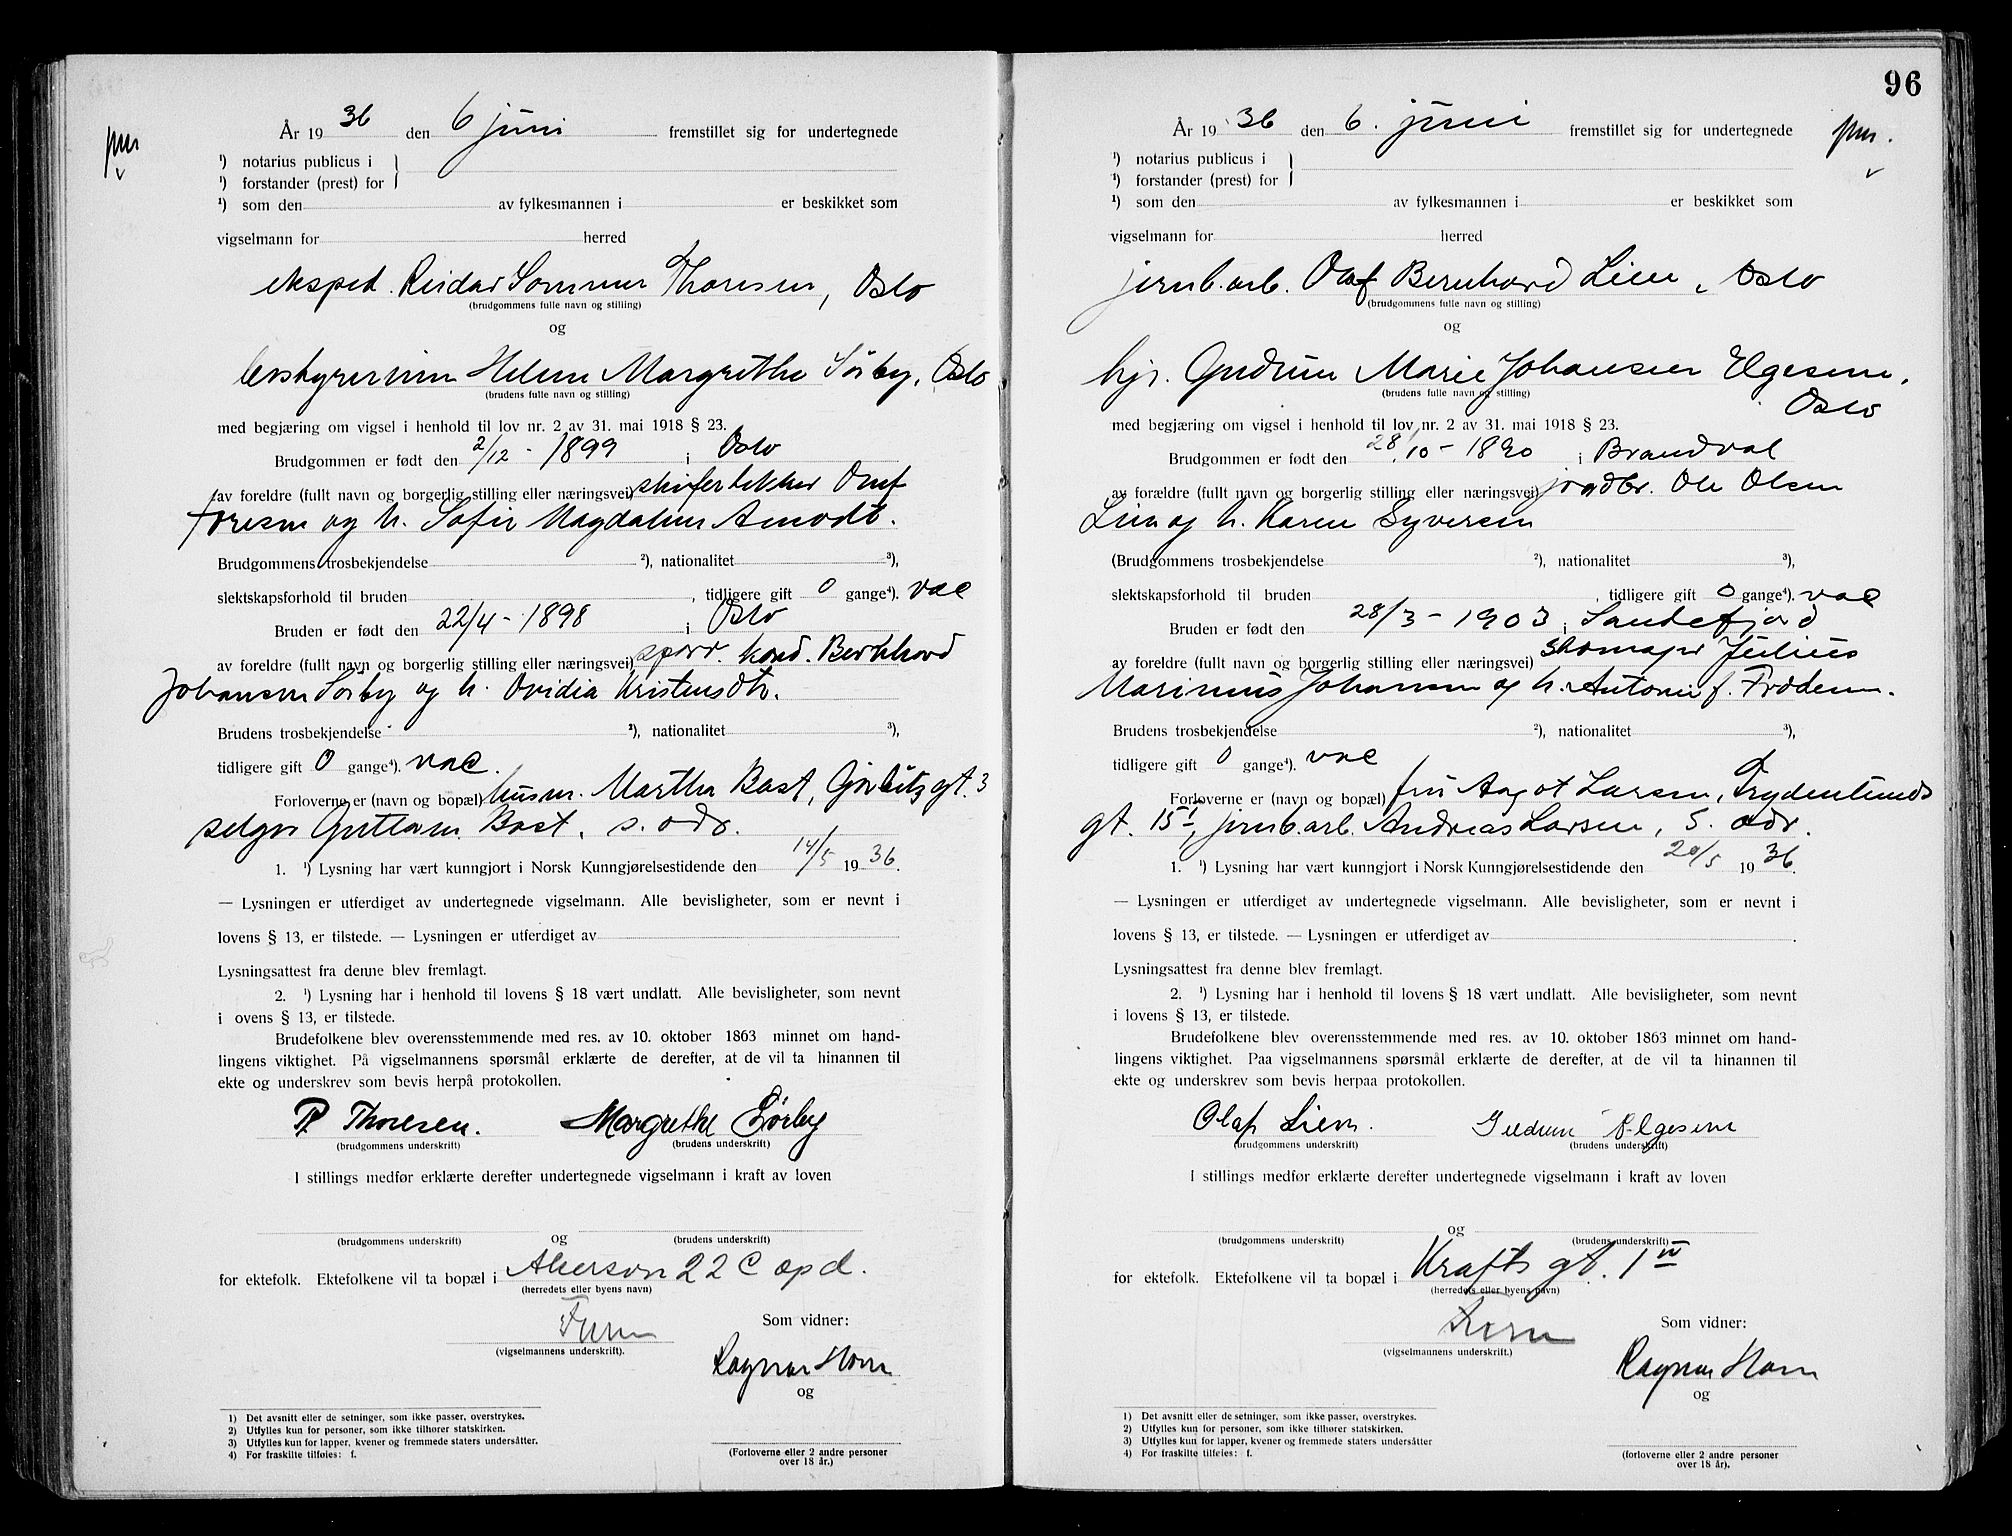 pm
År 1936 den 6 juni fremstillet sig for undertegnede
¹) notarius publicus i
¹) forstander (prest) for
¹) som den av fylkesmannen i er beskikket som
vigselmann for herred
eksped. Reidar Sommer Thoresen, Oslo
(brudgommens fulle navn og stilling)
og
bestyrerinne Helene Margrethe Sörby, Oslo
(brudens fulle navn og stilling)
med begjæring om vigsel i henhold til lov nr. 2 av 31. mai 1918 § 23.
Brudgommen er født den 2/12 - 1899 i Oslo
av foreldre (fullt navn og borgerlig stilling eller næringsvei) skifertekker Oluf
Toresen og h. Sofie Magdalene Amodt.
Brudgommens trosbekjendelse ²), nationalitet ³),
slektskapsforhold til bruden , tidligere gift 0 gange⁴). vac
Bruden er født den 22/4 - 1898 i Oslo
av foreldre (fullt navn og borgerlig stilling eller næringsvei) sporv. kond. Bernhard
Johansen Sörby og h. Ovidia Kristensdtr.
Brudens trosbekjendelse ²), nationalitet ³),
tidligere gift 0 gange⁴). vac.
Forloverne er (navn og bopæl) husm. Martha Bast, Gørbitzgt. 3
selger Guttorm Bast, s. adr.
1. ¹) Lysning har vært kunngjort i Norsk Kunngjørelsestidende den 14/5 1936.
— Lysningen er utferdiget av undertegnede vigselmann. Alle bevisligheter, som er nevnt i
lovens § 13, er tilstede. — Lysningen er utferdiget av
Lysningsattest fra denne blev fremlagt.
2. ¹) Lysning har i henhold til lovens § 18 vært undlatt. Alle bevisligheter, som nevnt
i ovens § 13, er tilstede.
Brudefolkene blev overensstemmende med res. av 10. oktober 1863 minnet om hand-
lingens viktighet. På vigselmannens spørsmål erklærte de derefter, at de vil ta hinannen til
ekte og underskrev som bevis herpå protokollen.
R Thoresen. Margrethe Sørby
(brudgommens underskrift) (brudens underskrift)
I stillings medfør erklærte derefter undertegnede vigselmann i kraft av loven
og
(brudgommens underskrift) (brudens underskrift)
for ektefolk. Ektefolkene vil ta bopæl i Akersvn 22 C opd.
(herredets eller byens navn)
Som vidner:
(vigselmannens underskrift).
Ragnar Horn
og
1) Det avsnitt eller de setninger, som ikke passer, overstrykes.
2) Utfylles kun for personer, som ikke tilhører statskirken.
3) Utfylles kun for lapper, kvener og fremmede staters undersåtter.
4) For fraskilte tilføies: f.
(Forloverne eller 2 andre personer
over 18 år.)
96
pm.
År 1936 den 6. juni fremstillet sig for undertegnede
¹) notarius publicus i
¹) forstander (prest) for
¹) som den av fylkesmannen i er beskikket som
vigselmann for herred
jernb.arb. Olaf Bernhard Lien, Oslo
(brudgommens fulle navn og stilling)
og
hjv. Gudrun Marie Johansen Elgesem,
(brudens fulle navn og stilling)
Oslo
med begjæring om vigsel i henhold til lov nr. 2 av 31. mai 1918 § 23.
Brudgommen er født den 28/10 - 1890 i Brandval
av forældre (fullt navn og borgerlig stilling eller næringsvei) jordbr. Ole Olsen
Lien og h. Karen Syversen
(Brudgommens trosbekjendelse ²), nationalitet ³),
slektskapsforhold til bruden , tidligere gift 0 gange⁴). vac
Bruden er født den 28/3 - 1903 i Sandefjord
av foreldre (fullt navn og borgerlig stilling eller næringsvei) skomaker Julius
Marinius Johansen og h. Antonie f. Trødem.
Brudens trosbekjendelse ²), nationalitet ³),
tidligere gift 0 gange⁴). vac
Forloverne er (navn og bopæl) fru Aagot Larsen, Frydenlunds
gt. 15 I, jernb.arb. Andreas Larsen, s. adr.
1. ¹) Lysning har vært kunngjort i Norsk Kunngjørelsestidende den 20/5 1936.
— Lysningen er utferdiget av undertegnede vigselmann. Alle bevisligheter, som er nevnt i
lovens § 13, er tilstede. — Lysningen er utferdiget av .
Lysningsattest fra denne blev fremlagt.
2. ¹) Lysning har i henhold til lovens § 18 vært undlatt. Alle bevisligheter, som nevnt
i lovens § 13, er tilstede.
Brudefolkene blev overensstemmende med res. av 10. oktober 1863 minnet om hand-
lingens viktighet. Paa vigselmannens spørsmål erklærte de derefter, at de vil ta hinannen til
ekte og underskrev som bevis herpaa protokollen.
Olaf Lien. Gudrun Elgesem
(brudgommens underskrift) (brudens underskrift)
I stillings medfør erklærte derefter undertegnede vigselmann i kraft av loven
og
(brudgommens underskrift) (brudens underskrift)
for ektefolk. Ektefolkene vil ta bopæl i Krafts gt. 1 IV
(herredets eller byens navn)
Som vidner:
(vigselmannens underskrift.)
Ragnar Horn
og
1) Det avsnitt eller de setninger, som ikke passer, overstrykes.
2) Utfylles kun for personer, som ikke tilhører statskirken.
3) Utfylles kun for lapper, kvener og fremmede staters undersåtter
4) For fraskilte tilføies: f.
(forloverne eller 2 andre personer
over 18 år).